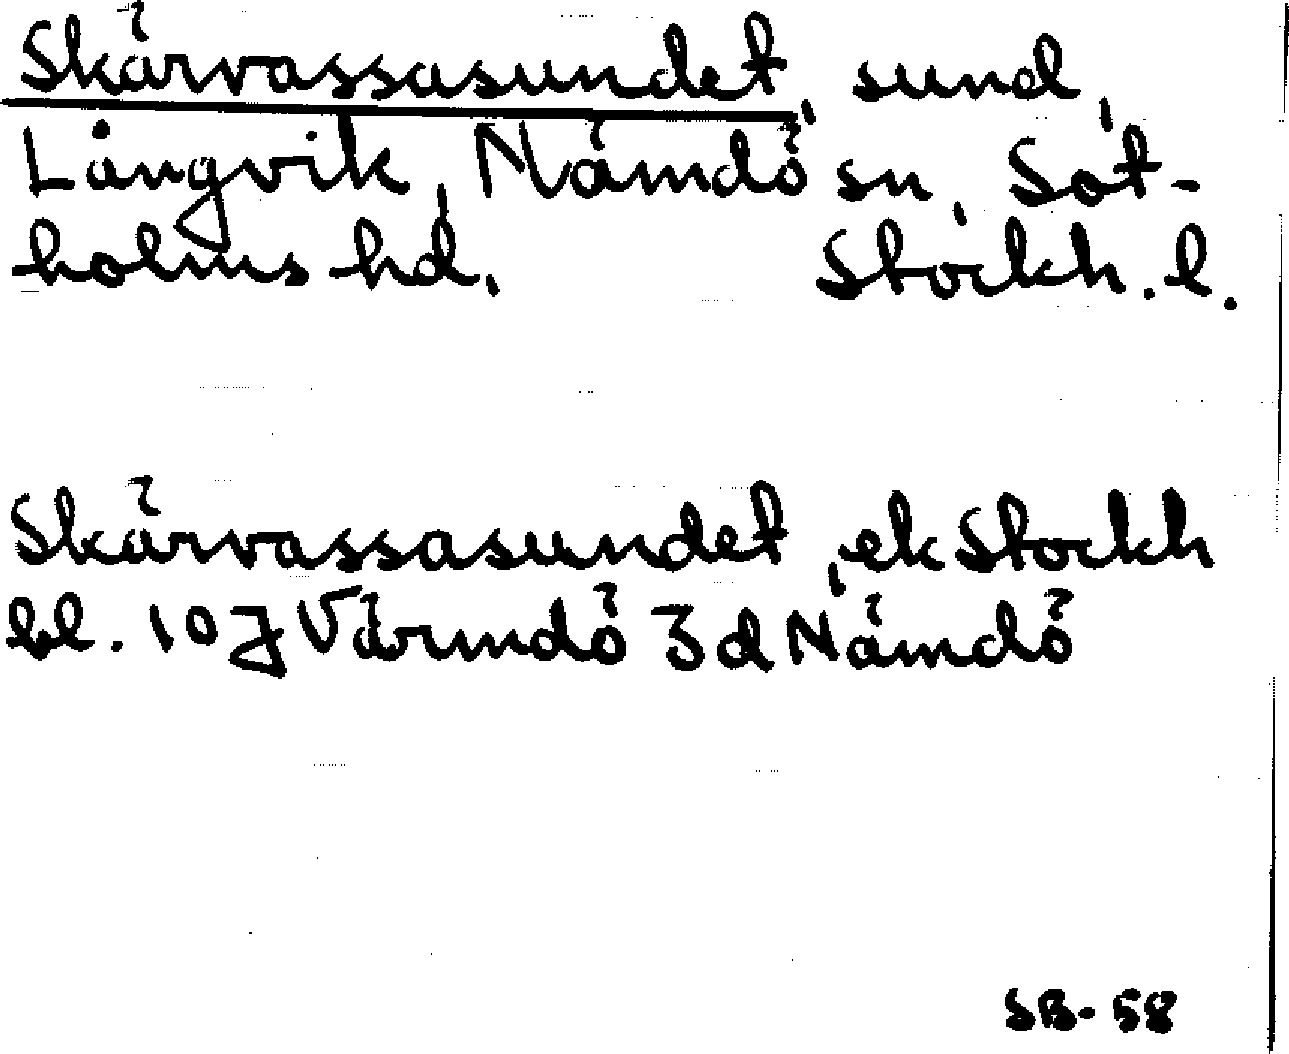 Skärvassasundet, sund,
Långvik, Nämdö sn, Sot-
holms hd. Stockh. l.
Skärvassasundet, ek Stockh
bl. 10J Värmdö 3d Nämdö
SB-58